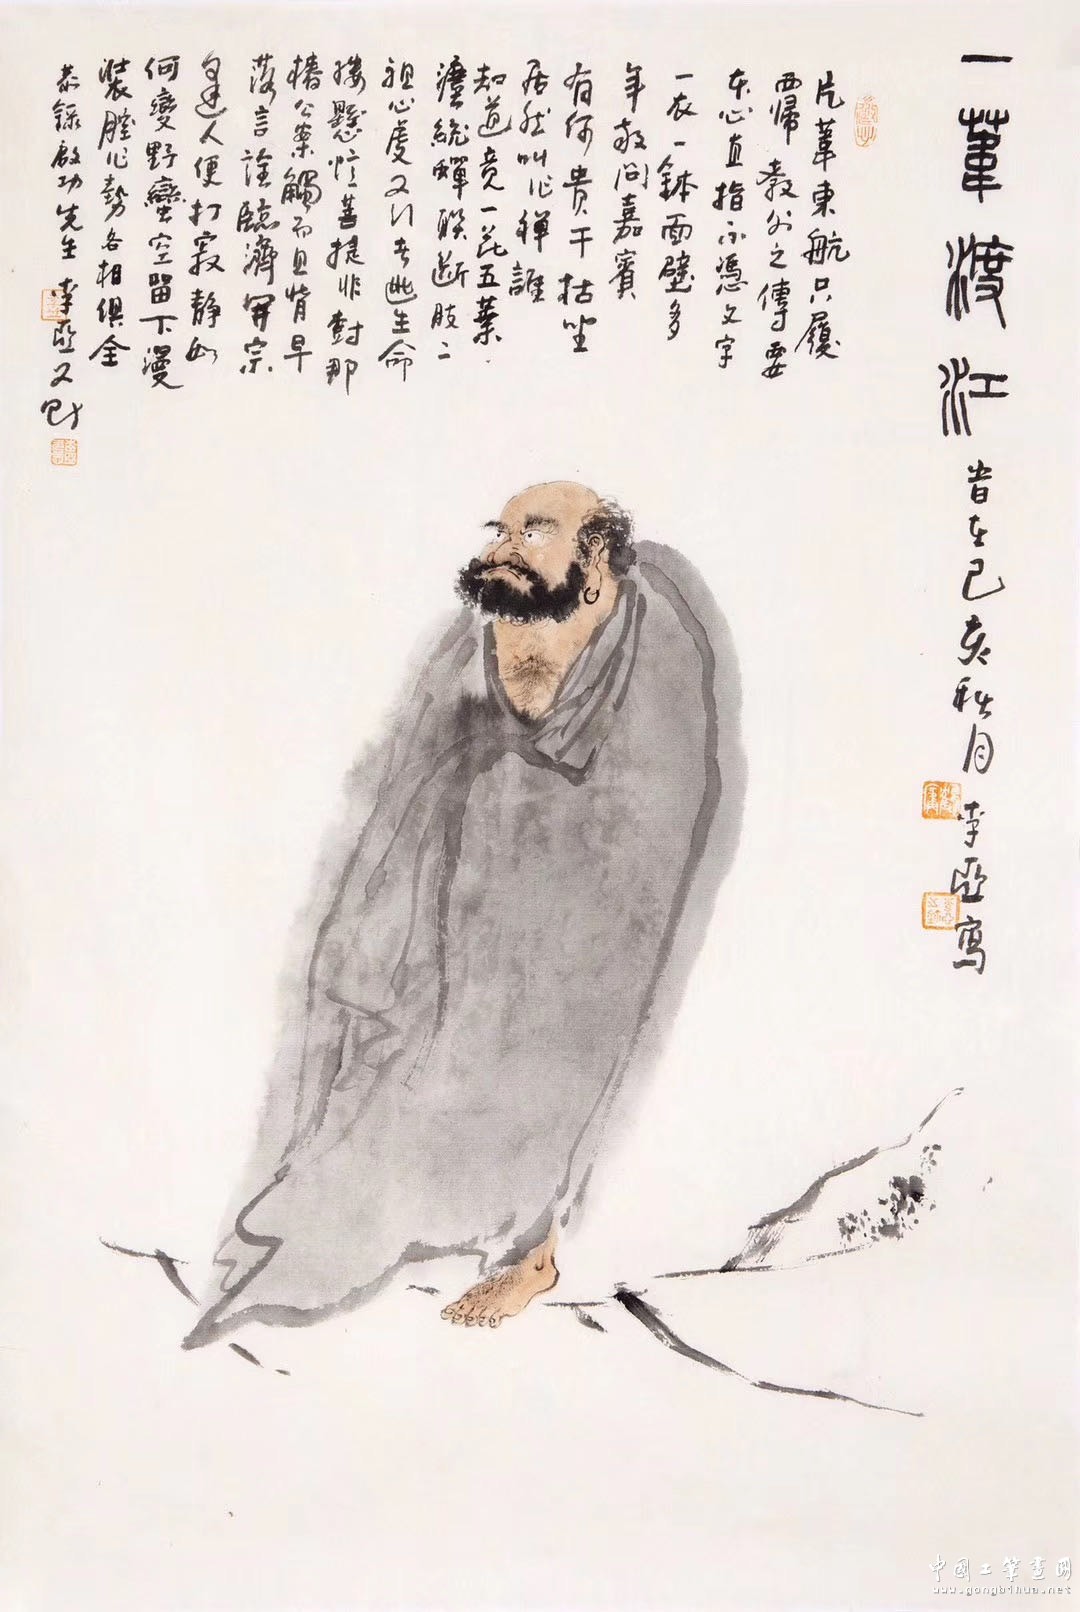 一葦渡江
昔在己亥秋月 李亞寫
片葦東航只履
西歸教外之傳要
本心直指不憑文字
一衣一鉢面壁多
年敢問嘉賓
有何貴干枯坐
居然叫作禪誰
知道竟一花五葉
燈統蟬聯斷肢二
祖心虔又行者逃生命
縷懸忙菩提非樹那
樁公案觸而且背早
落言詮臨濟開宗
逢人便打寂靜如
何變野蠻空留下漫
裝腔作勢各相俱全
恭錄啟功先生 李亞又
中國工筆畫網
www.gongbihua.net